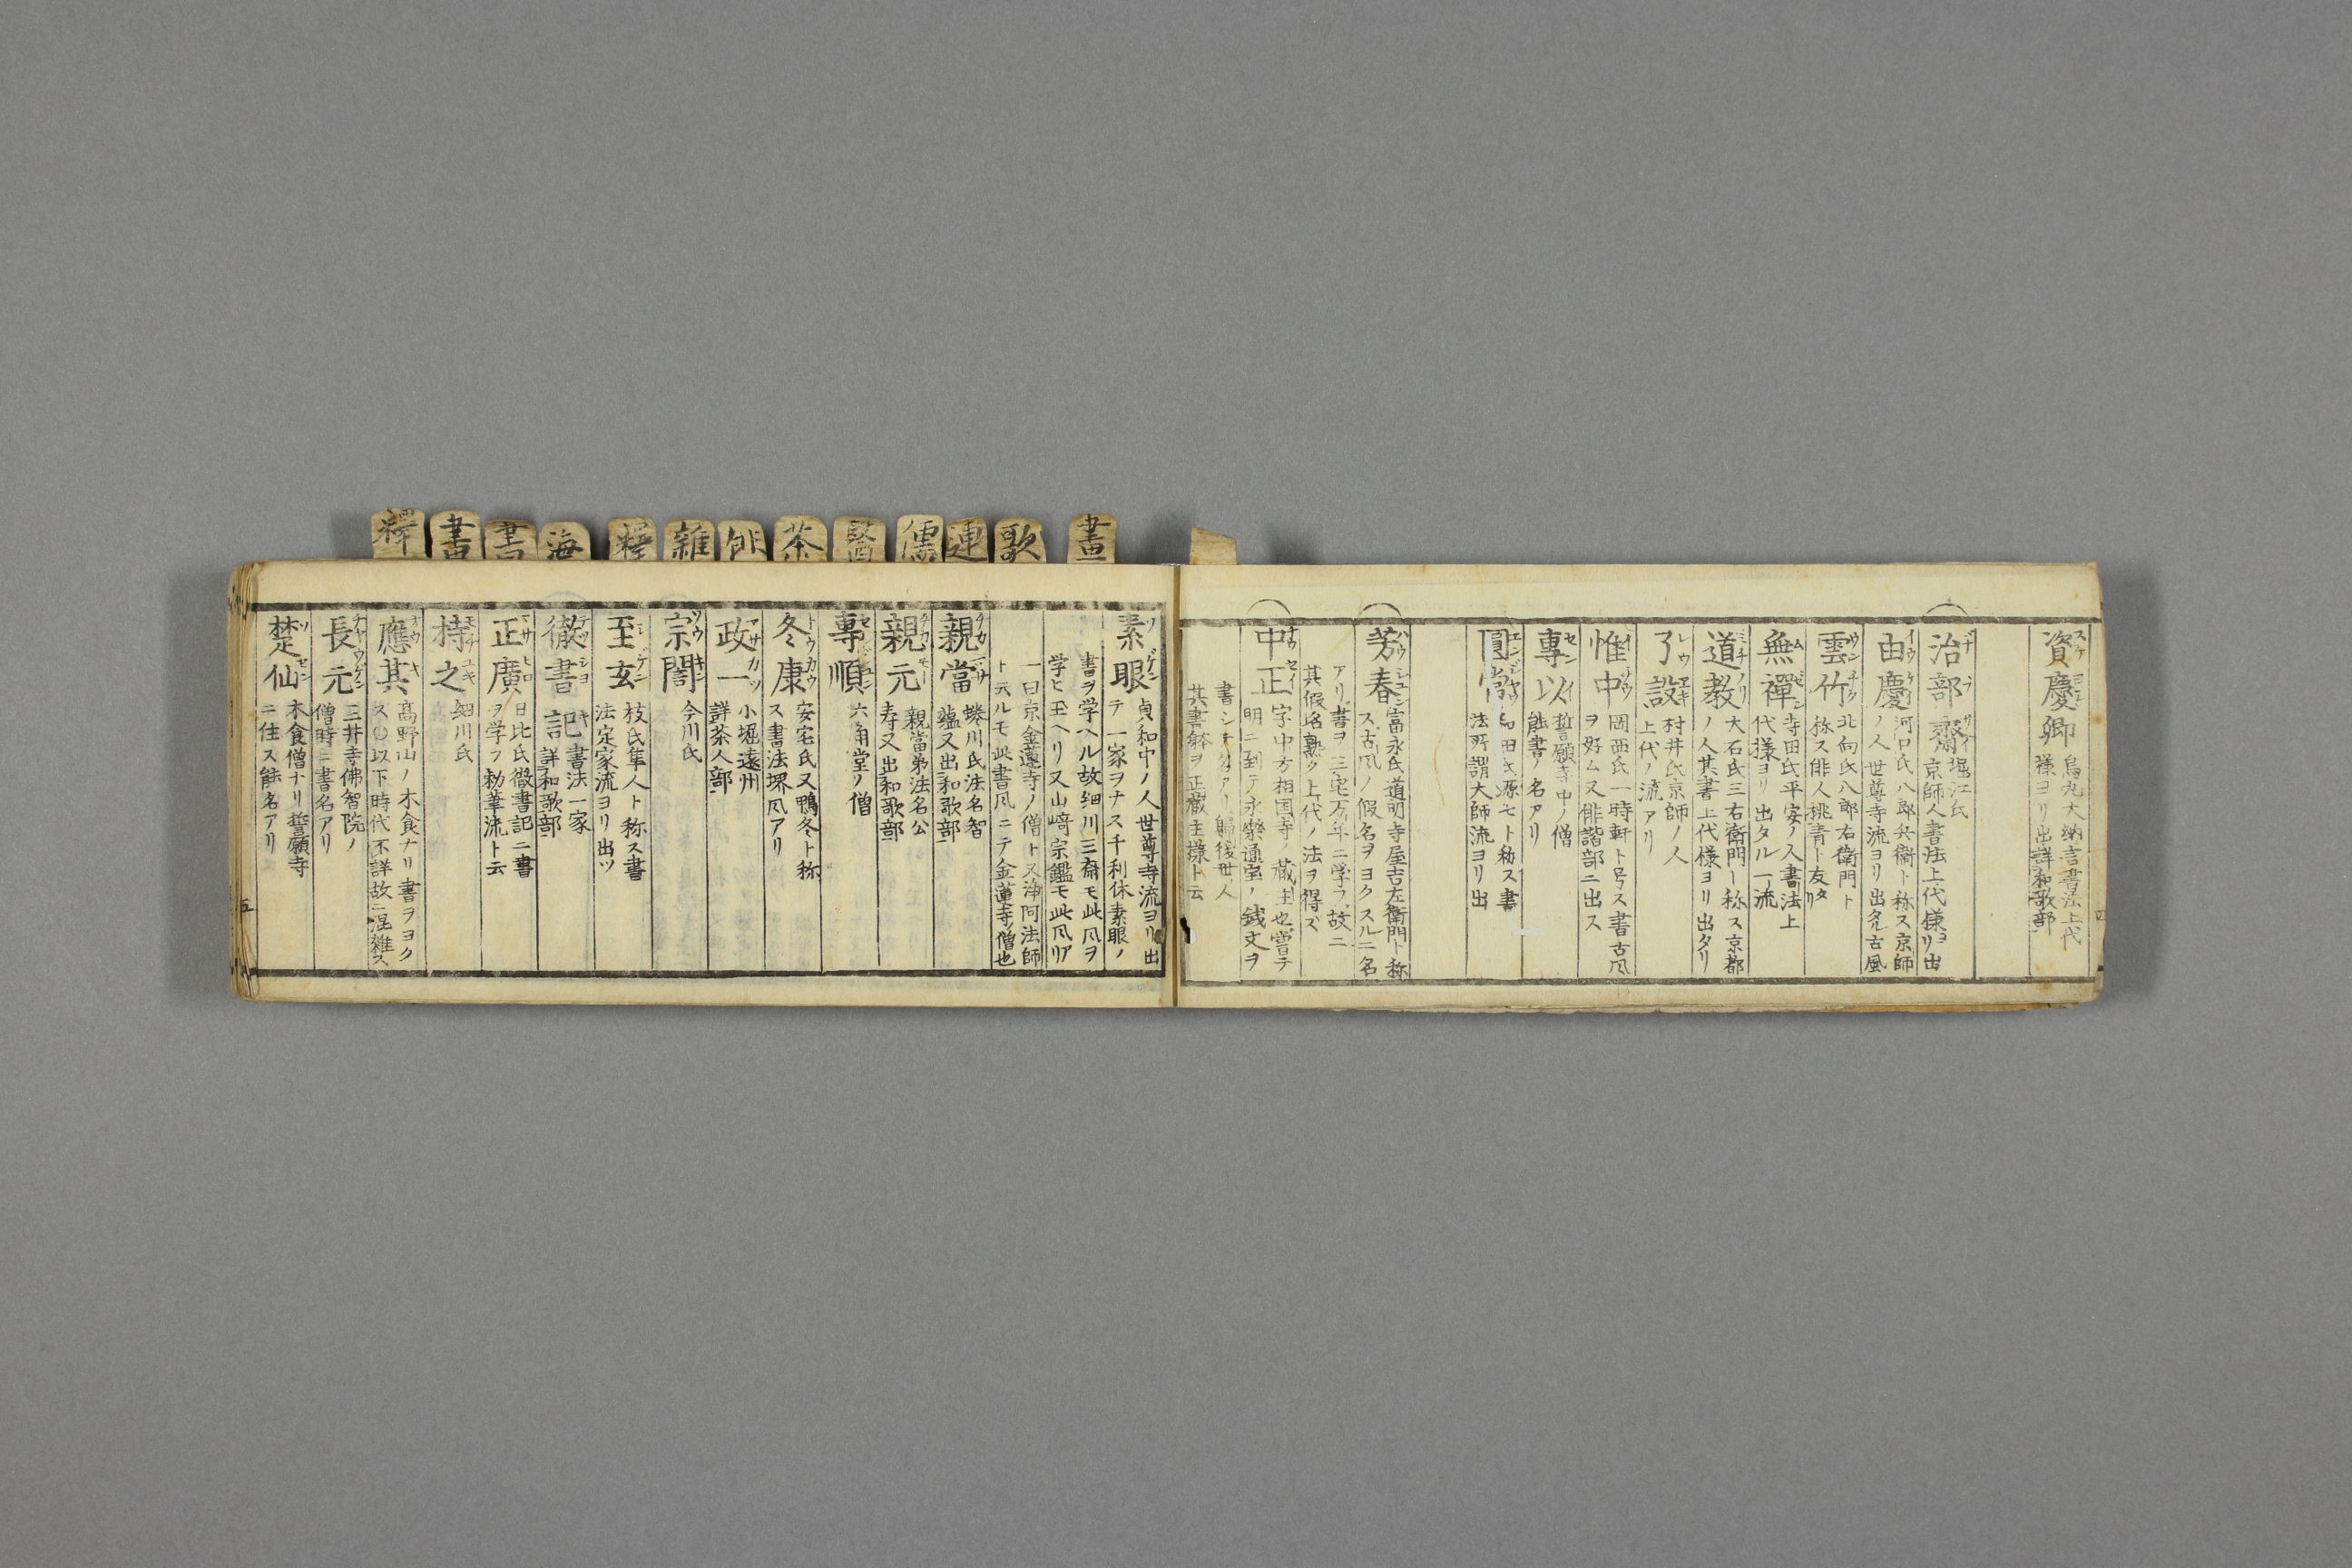 資慶卿 烏丸大納言書法上代
様ヨリ出詳和歌部
治部齋 堀江氏
京師人書法上代様ヨリ出
由慶 河口氏八郎兵衞ト称ス京師
ノ人世尊寺流ヨリ出タル古風
雲竹 北向氏八郎右衛門ト
称ス俳人桃青ト友タリ
無禪 寺田氏平安ノ人書法上
代様ヨリ出タル一流
道教 大石氏三右衛門ト称ス京都
ノ人其書上代様ヨリ出タリ
了設 村井氏京師ノ人
上代ノ流アリ
惟中 岡西氏一時軒ト号ス書古风
ヲ好ム又俳諧部ニ出ス
專以 誓願寺中ノ僧
能書ノ名アリ
圓常 和田氏源七ト称ス書
法所謂大師流ヨリ出
芳春 富永氏道明寺屋吉左衛門ト称
ス古风ノ假名ヲヨクスルニ名
アリ書ヲ三宅万年ニ学フ故ニ
其假名熟 上代ノ法ヲ得ズ
中正 字中方相国寺ノ藏主也嘗テ
明ニ到テ永樂通宝ノ銭文ヲ
書シテ名アリ歸後世人
其書躰ヲ正藏主様ト云
画
歌
連
儒
醫
茶
俳
雜
釋
海
書
書
釋
素眼 貞和中ノ人世尊寺流ヨリ出
テ一家ヲナス千利休素眼ノ
書ヲ学ヘル故细川三斎モ此风ヲ
学ヒ玉ヘリ又山﨑宗鑑モ此风アリ
一曰京金蓮寺ノ僧ト又浄阿法師
ト云ルモ此書风ニテ金蓮寺ノ僧也
親當 蜷川氏法名智
蘊又出和歌部
親元 親當弟法名公
寿又出和歌部
專順 六角堂ノ僧
冬康 安宅氏又鴨冬ト称
ス書法堺风アリ
政一 小堀遠州
詳茶人部
宗誾 今川氏
至玄 枝氏隼人ト称ス書
法定家流ヨリ出ツ
徹書記 書法一家
詳和歌部
正廣 日比氏徹書記ニ書
ヲ学フ勅筆流ト云
持之 细川氏
應其 高野山ノ木食ナリ書ヲヨク
ス〇以下時代不詳故ニ混雜ス
長元 三井寺佛智院ノ
僧時ニ書名アリ
楚仙 木食僧ナリ誓願寺
ニ住ス能名アリ
五